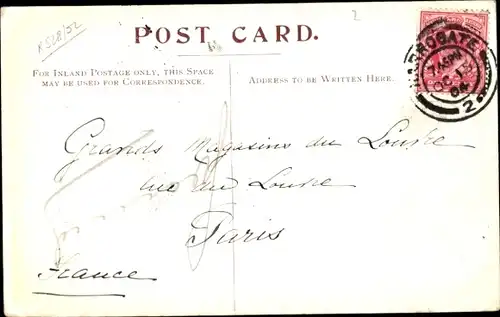 K528/52
2
POST CARD.
FOR INLAND POSTAGE ONLY, THIS SPACE
MAY BE USED FOR CORRESPONDENCE.
ADDRESS TO BE WRITTEN HERE.
HARROGATE
04
2
Grands Magasins du Louvre
Rue du Louvre
Paris
France